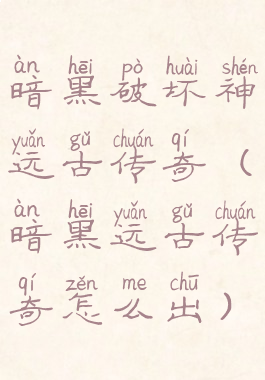 àn hēi pò huài shén
暗黑破坏神
yuǎn gǔ chuán qí
远古传奇（
àn hēi yuǎn gǔ chuán
暗黑远古传
qí zěn me chū
奇怎么出）